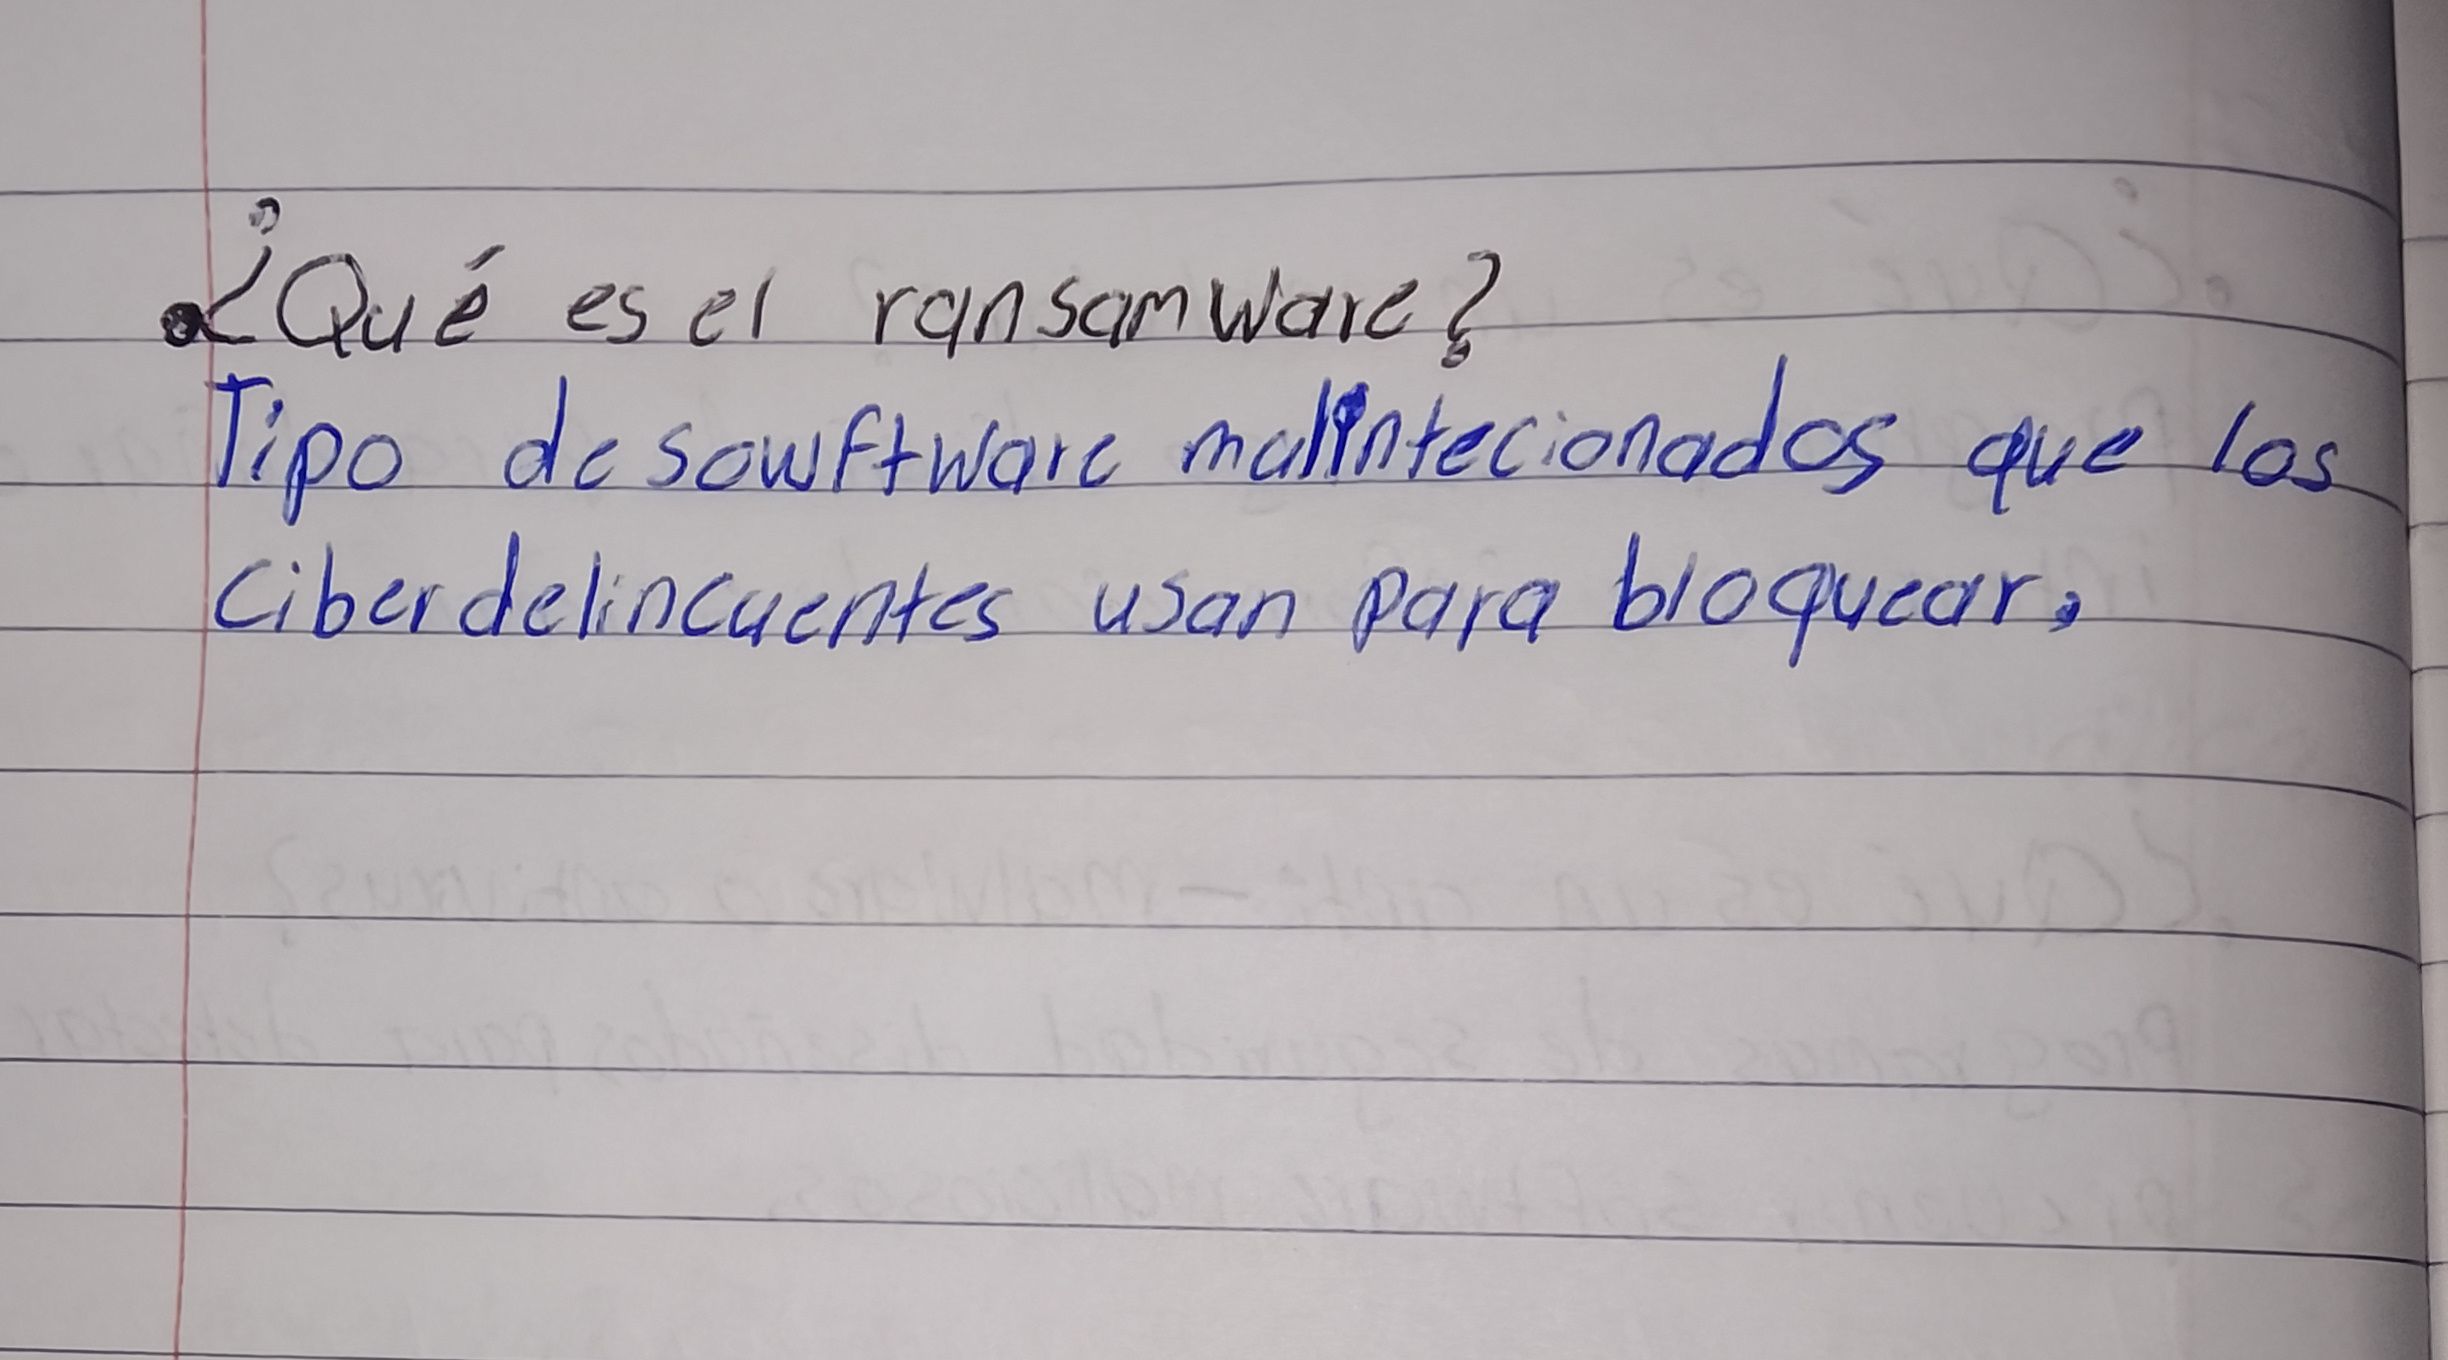 ¿Qué es el ransamware?
Tipo de sowftware malintecionados que los
ciberdelincuentes usan para bloquear.